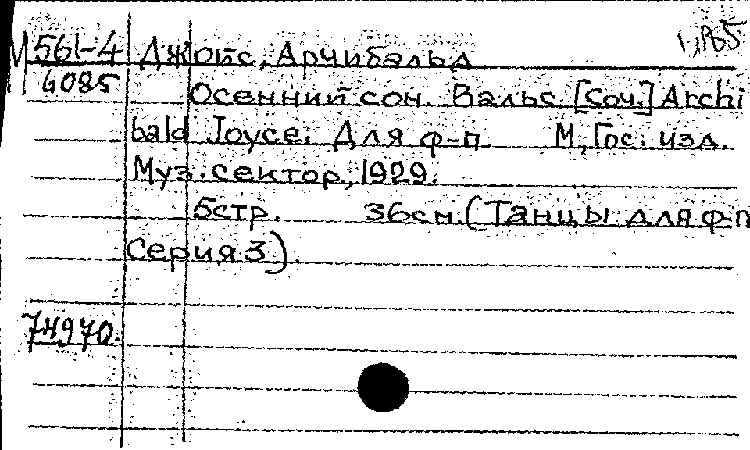 М 561-4 Джойс, Арчибальд
6085
Осенний сон. Вальс. [Соч.] Archi
bald Joyce. Для ф-п М, Гос. изд.
Муз. сектор, 1929.
5стр. 36см. (Танцы для ф-п
Серия 3).
74970.